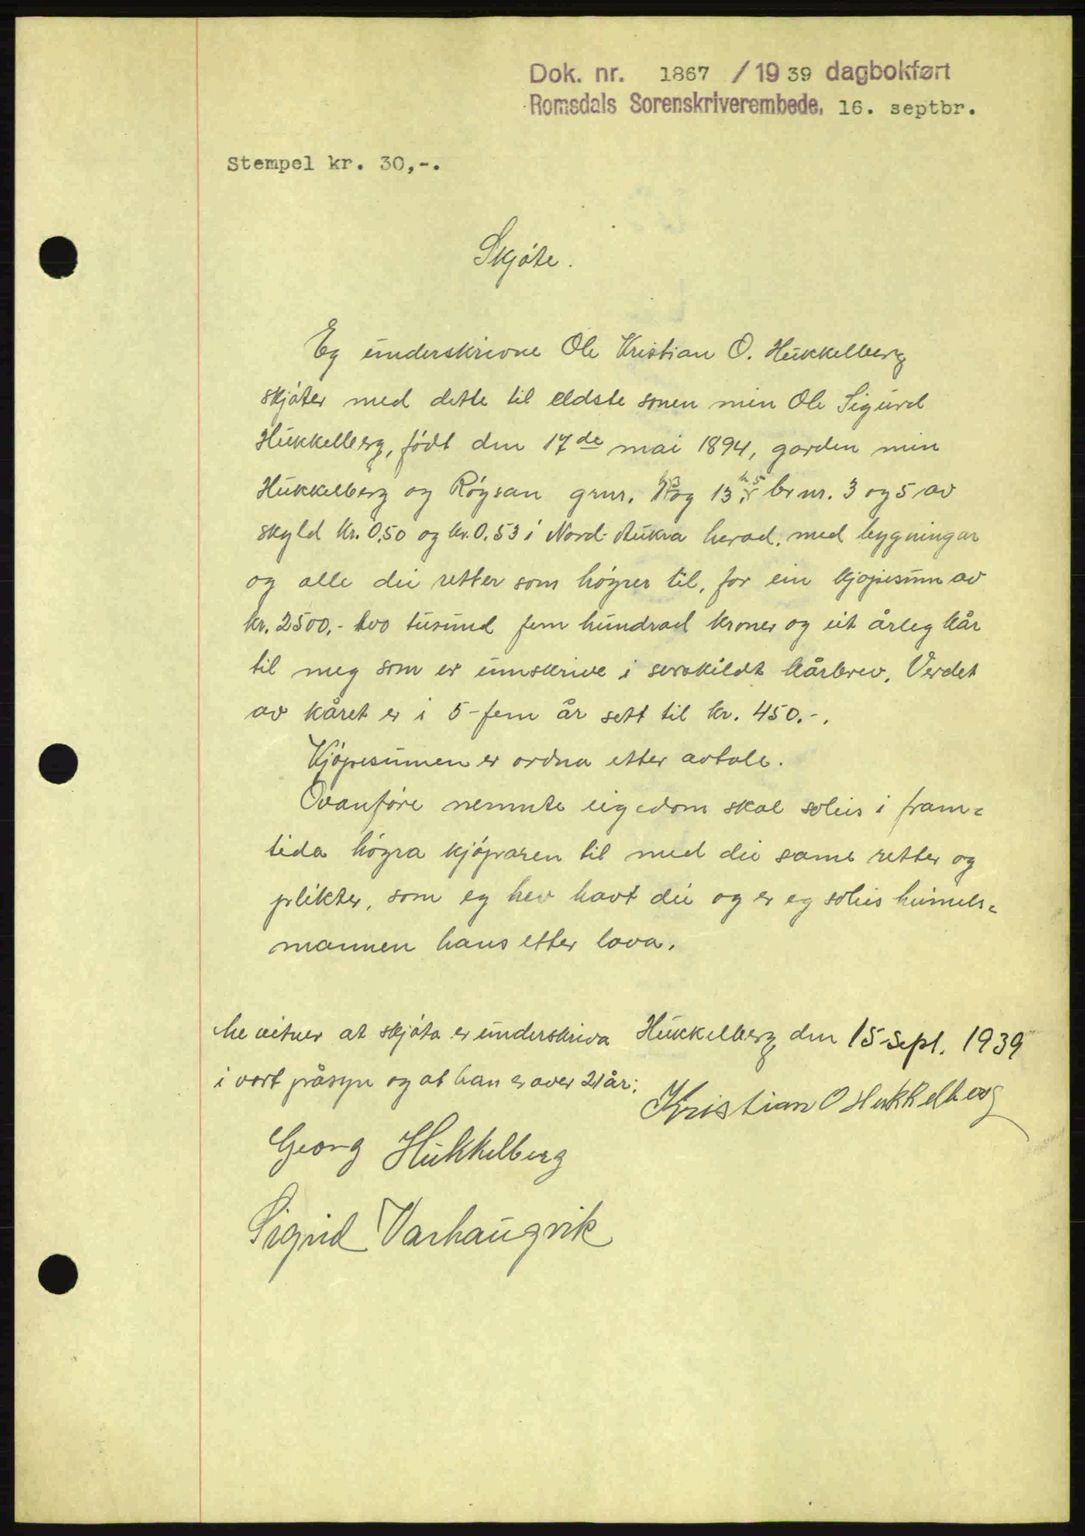 Dok. nr. 1867 / 1939 dagbokført
Romsdals Sorenskriverembede, 16. septbr.
Stempel kr. 30,-.
Skjøte.
Eg underskrivne Ole Kristian O. Hukkelberg
skjøter med dette til eldste sonen min Ole Sigurd
Hukkelberg, født den 17de mai 1894, garden min
Hukkelberg og Røysan grnr. og 13 br nr. 3 og 5 av
skyld kr. 0,50 og kr. 0.53 i Nord-Aukra herad, med bygningar
og alle dei retter som høyrer til, for ein kjøpesum av
kr. 2500,- tvo tusund fem hundrad kroner og eit årleg kår
til meg som er innskrive i serskildt kårbrev. Verdet
av kåret er i 5-fem år sett til kr. 450.-.
Kjøpesumen er ordna etter avtale.
Ovanføre nemnte eigedom skal soleis i fram=
tida høyra kjøparen til med dei same retter og
plikter, som eg hev havt dei og er eg soleis heimels=
mannen hans etter lova.
Me vitner at skjøta er underskriva Hukkelberg den 15 sept. 1939
i vort påsyn og at han er over 21 år: Kristian O Hukkelberg
Georg Hukkelberg
Sigrid Varhaugvik